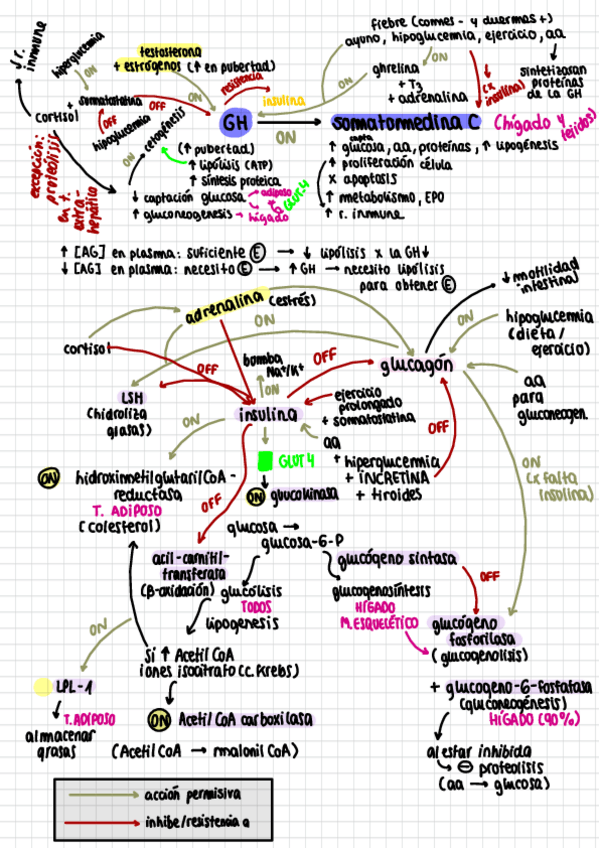 fiebre (comes - y duermes +)
ayuno, hipoglucemia, ejercicio, aa
↓ r. inmune
hiperglucemia
ON
testosterona
+ estrógenos (↑ en pubertad)
ON
resistencia
insulina
ON
ghrelina
+ T3
+ adrenalina
↓ (x insulina)
sintetizaran
proteínas
de la GH
cortisol
+ somatostatina
OFF
OFF
hipoglucemia
GH
ON
somatomedina C (hígado y tejidos)
excepción:
proteolisis
en t.
extra-
hepático
ON
cetogénesis
(↑ pubertad)
↑ lipólisis (ATP)
↑ síntesis proteica
↓ captación glucosa → adiposo
↑ gluconeogenesis → hígado
GLUT-4
capta
↑ glucosa, aa, proteínas, ↑ lipogénesis
↑ proliferación célula
x apoptosis
↑ metabolismo, EPO
↑ r. inmune
↑ [AG] en plasma: suficiente E → ↓ lipólisis x la GH↓
↓ [AG] en plasma: necesito E → ↑ GH → necesito lipólisis
para obtener E
↓ motilidad
intestinal
adrenalina (estrés)
ON
ON
hipoglucemia
(dieta/
ejercicio)
cortisol
OFF
bomba
Na+/K+
OFF
glucagón
LSH
(hidroliza
grasas)
ON
insulina
ON
ejercicio
prolongado
+ somatostatina
OFF
aa
para
gluconeogen.
aa
GLUT 4
↑ hiperglucemia
+ INCRETINA
+ tiroides
ON
hidroximetilglutarilCoA-
reductasa
T. ADIPOSO
(colesterol)
ON glucokinasa
OFF
ON
(x falta
insulina)
glucosa →
glucosa-6-P
acil-carnitil-
transferasa
(β-oxidación)
glucólisis
TODOS
lipogenesis
glucógeno sintasa
glucogenosíntesis
HÍGADO
M. ESQUELÉTICO
OFF
glucógeno
fosforilasa
(glucogenolisis)
ON
Si ↑ Acetil CoA
iones isocitrato (c. Krebs)
LPL-1
T. ADIPOSO
almacenar
grasas
ON Acetil CoA carboxilasa
(Acetil CoA → malonil CoA)
+ glucogeno-6-fosfatasa
(gluconeogénesis)
HÍGADO (90%)
al estar inhibida
⊖ proteolisis
(aa → glucosa)
acción permisiva
inhibe/resistencia a